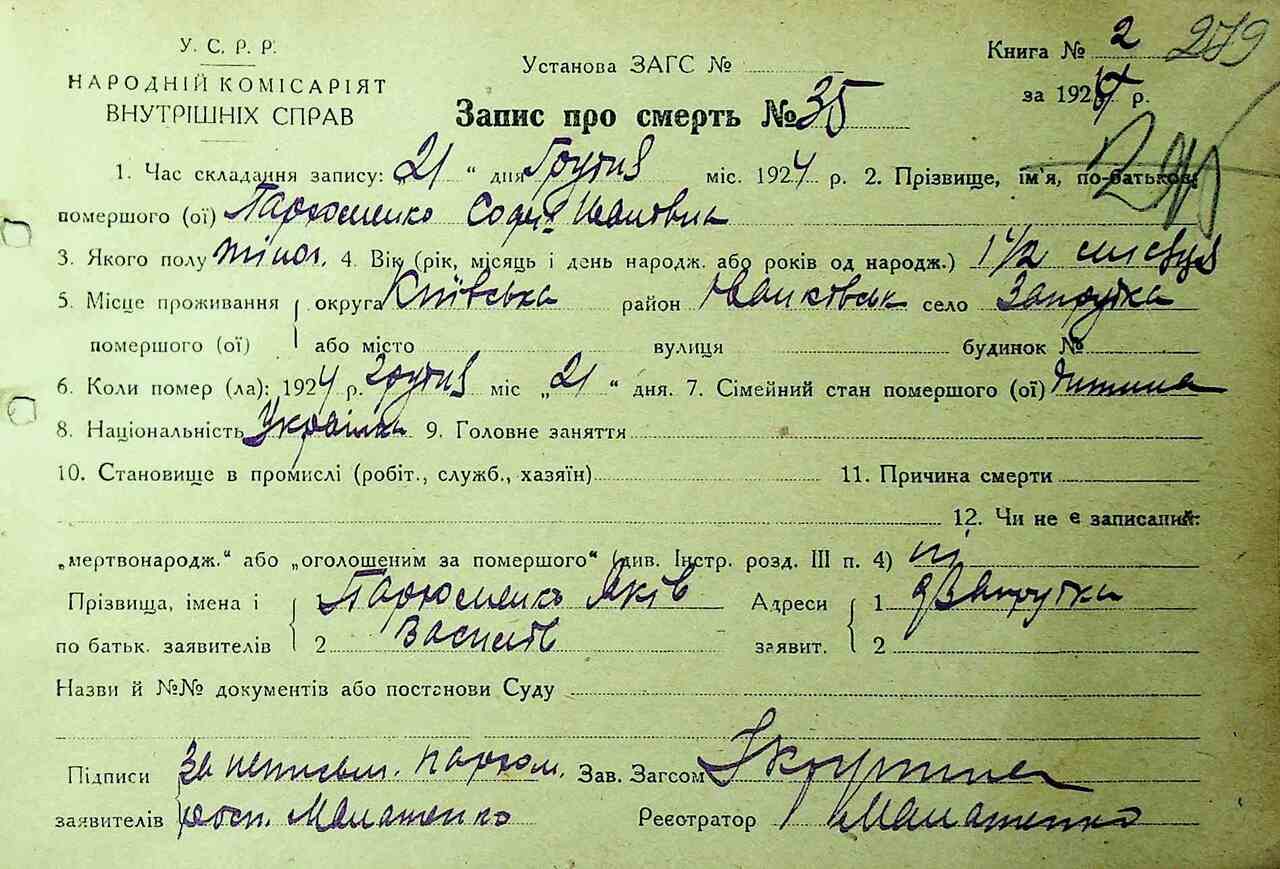 У. С. Р. Р.
НАРОДНІЙ КОМІСАРІЯТ
ВНУТРІШНІХ СПРАВ
Установа ЗАГС №
Книга № 2 279
за 1924 р.
Запис про смерть № 35
1. Час складання запису: „21“ дня Грудня міс. 1924 р. 2. Прізвище, ім'я, по-батькові
помершого (ої) Пархоменко Софія Івановна
3. Якого полу жіноч. 4. Вік (рік, місяць і день народж. або років од народж.) 1 1/2 місяця
5. Місце проживання округа Київська район Іванківськ село Запрудка
помершого (ої) або місто вулиця будинок №
6. Коли помер (ла): 1924 р. Грудня міс „21“ дня. 7. Сімейний стан помершого (ої) дитина
8. Національність Українка 9. Головне заняття
10. Становище в промислі (робіт., служб., хазяїн) 11. Причина смерти
12. Чи не є записаний:
„мертвонародж.“ або „оголошеним за помершого“ (див. Інстр. розд. III п. 4) ні
Прізвища, імена і 1 Пархоменко Яків Адреси 1 Запрудка
по батьк. заявителів 2 заявит. 2
Назви й №№ документів або постанови Суду
Підписи За неписьм. Пархом. Зав. Загсом
заявителів росп. Малашенко Реєстратор Малашенко